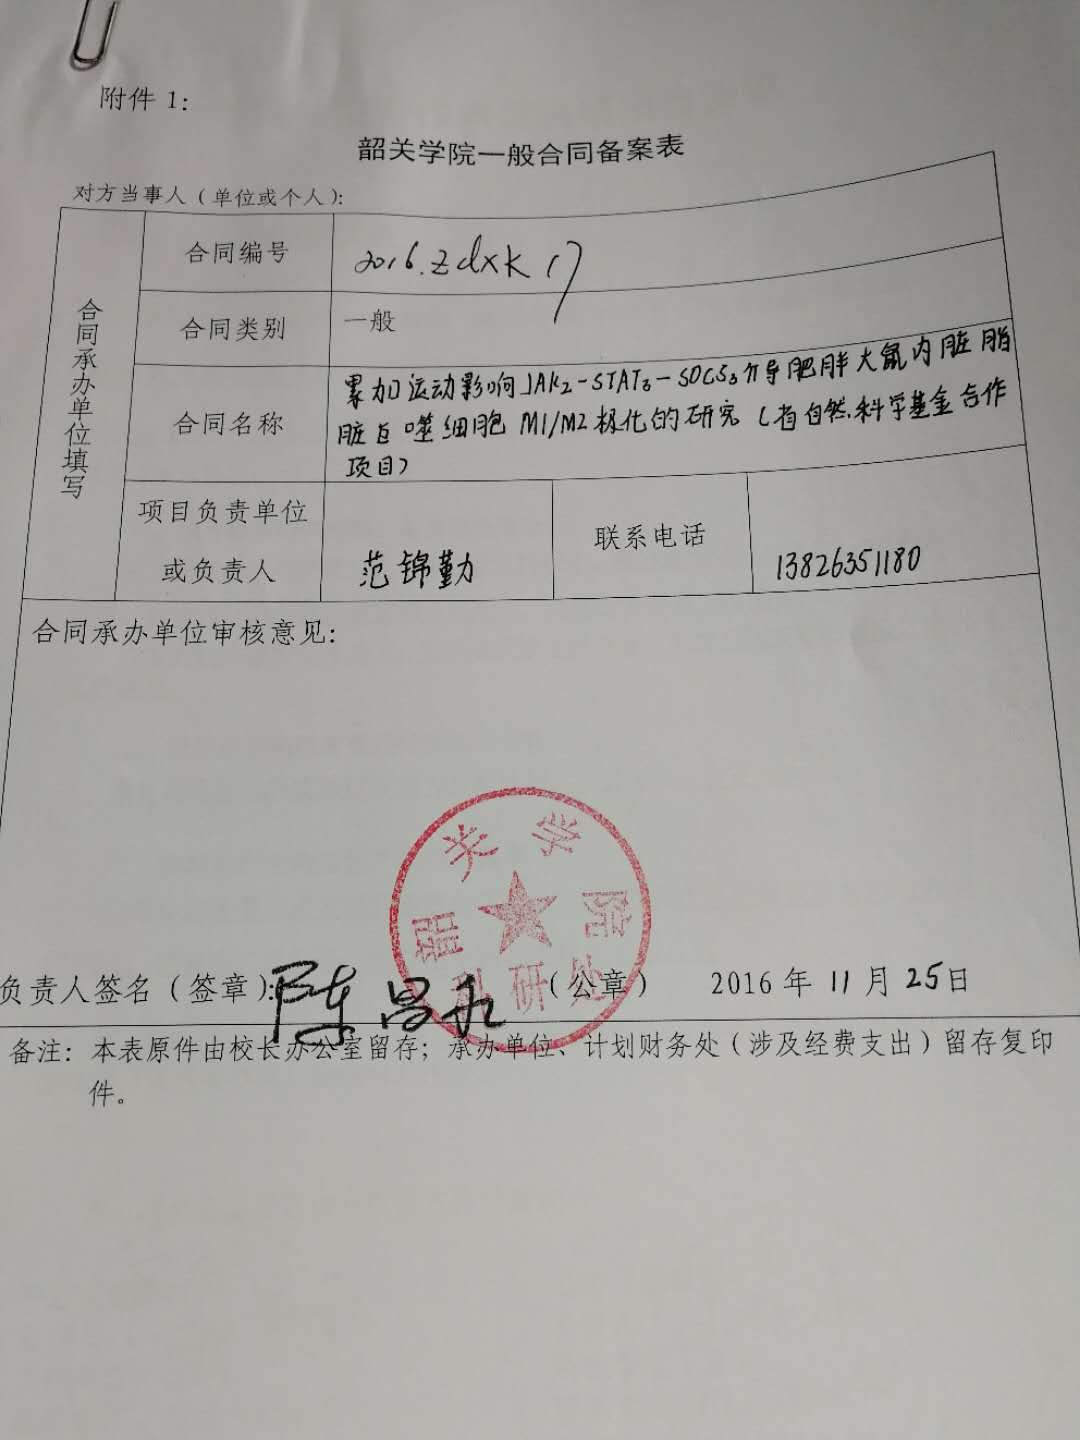 附件 1:
韶关学院一般合同备案表
对方当事人（单位或个人）:
合同承办单位填写
合同编号
2016.zdxk17
合同类别
一般
合同名称
累加运动影响JAK2-STAT3-SOCS3介导肥胖大鼠内脏脂
脏巨噬细胞M1/M2极化的研究（省自然科学基金合作
项目）
项目负责单位
或负责人
范锦勤
联系电话
13826351180
合同承办单位审核意见:
韶关学院
科研处
负责人签名（签章）:
陈昌
（公章）
2016年11月25日
备注: 本表原件由校长办公室留存；承办单位、计划财务处（涉及经费支出）留存复印
件。